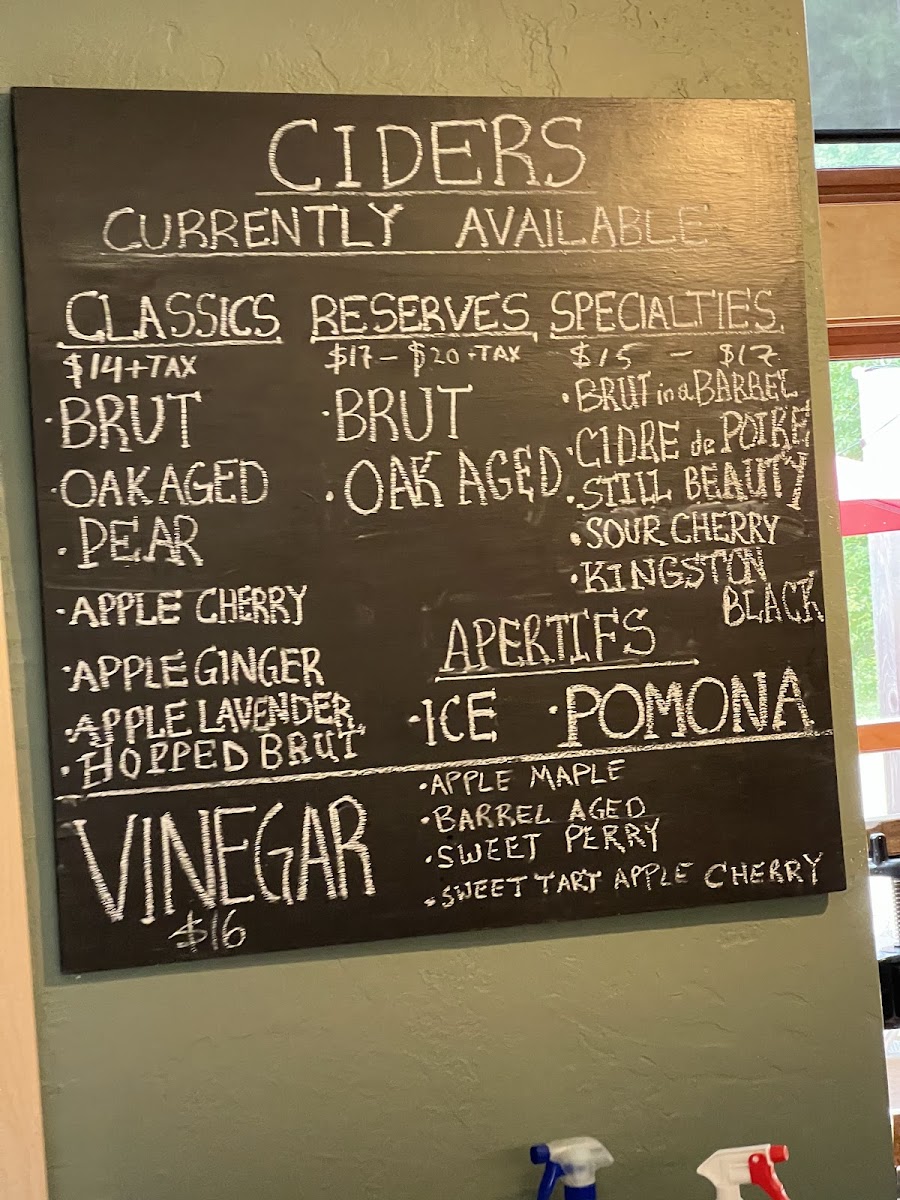 CIDERS
CURRENTLY AVAILABLE
CLASSICS
$14+TAX
·BRUT
·OAK AGED
·PEAR
·APPLE CHERRY
·APPLE GINGER
·APPLE LAVENDER
·HOPPED BRUT
RESERVES
$17-$20+TAX
·BRUT
·OAK AGED
SPECIALTIES
$15 - $17
·BRUT in a BARREL
·CIDRE de POIRE
·STILL BEAUTY
·SOUR CHERRY
·KINGSTON
BLACK
APERTIFS
·ICE ·POMONA
VINEGAR
$16
·APPLE MAPLE
·BARREL AGED
·SWEET PERRY
·SWEET TART APPLE CHERRY